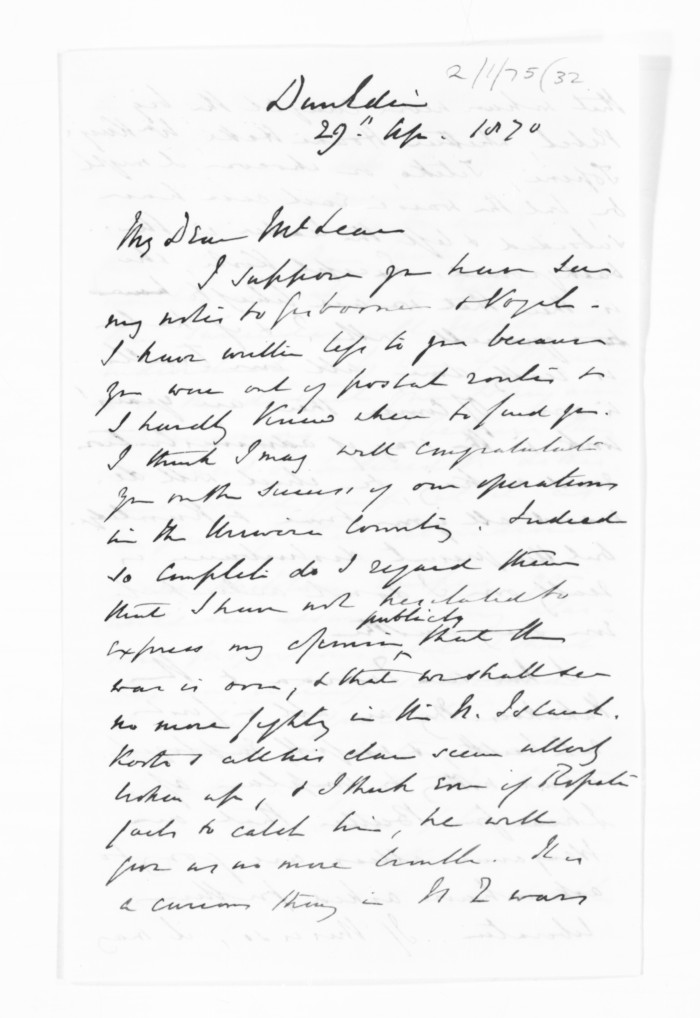 2/1/75(32
Dunedin
29th Ap. 1870
My Dear McLean
I suppose you have seen
my notes to Gisborne & Vogel -
I have written less to you because
you were out of postal routes &
I hardly knew where to find you.
I think I may well congratulate
you on the success of our operations
in the Urewera Country. Indeed
so complete do I regard them
that I have not hesitated to
express my opinion publicly that the
war is over, & that we shall see
no more fighting in the N. Island.
Kooti & all his clan seem utterly
broken up, & I think even if Ropata
fails to catch him, he will
give us no more trouble. It is
a curious thing in N Z wars